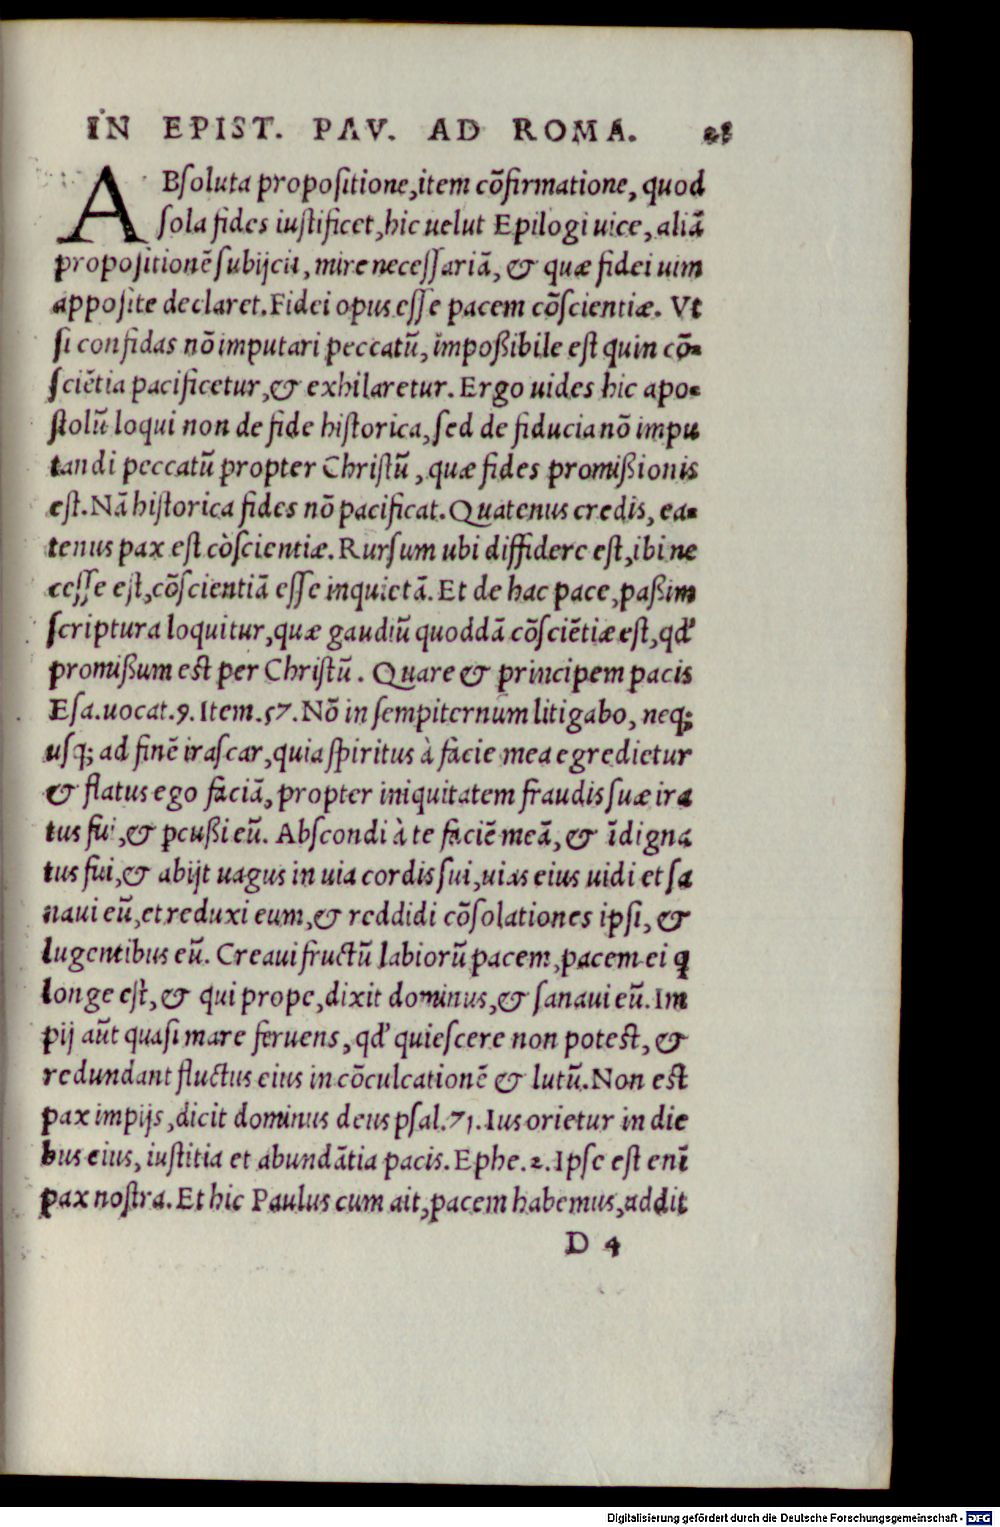 IN EPIST. PAV. AD ROMA. 28
ABſoluta propoſitione,item cõfirmatione, quod
ſola fides iuſtificet,hic uelut Epilogi uice, aliã
propoſitionẽ ſubijcit, mire neceſſariã, & quæ fidei uim
appoſite declaret. Fidei opus eſſe pacem cõſcientiæ. Vt
ſi confidas nõ imputari peccatũ, impoßibile eſt quin cõ-
ſciẽtia pacificetur, & exhilaretur. Ergo uides hic apo-
ſtolũ loqui non de fide hiſtorica, ſed de fiducia nõ impu
tandi peccatũ propter Chriſtũ, quæ fides promißionis
eſt. Nã hiſtorica fides nõ pacificat. Quatenus credis, ea-
tenus pax eſt cõſcientiæ. Rurſum ubi diffidere eſt, ibi ne
ceſſe eſt, cõſcientiã eſſe inquietã. Et de hac pace, paßim
ſcriptura loquitur, quæ gaudiũ quoddã cõſciẽtiæ eſt, qđ
promißum est per Chriſtũ. Quare & principem pacis
Eſa. uocat. 9. Item. 57. Nõ in ſempiternum litigabo, neq;
uſq; ad finẽ iraſcar, quia ſpiritus à facie mea egredietur
& flatus ego faciã, propter iniquitatem fraudis ſuæ ira
tus fui, & pcußi eũ. Abſcondi à te faciẽ meã, & ĩdigna
tus fui, & abijt uagus in uia cordis ſui, uias eius uidi et ſa
naui eũ, et reduxi eum, & reddidi cõſolationes ipſi, &
lugentibus eũ. Creaui fructũ labiorũ pacem, pacem ei q
longe eſt, & qui prope, dixit dominus, & ſanaui eũ. Im
pij aũt quaſi mare feruens, qđ quieſcere non potest, &
redundant fluctus eius in cõculcationẽ & lutũ. Non est
pax impijs, dicit dominus deus pſal. 71. Ius orietur in die
bus eius, iuſtitia et abundãtia pacis. Ephe. 2. Ipſe est enĩ
pax noſtra. Et hic Paulus cum ait, pacem habemus, addit
D 4
Digitalisierung gefördert durch die Deutsche Forschungsgemeinschaft - DFG